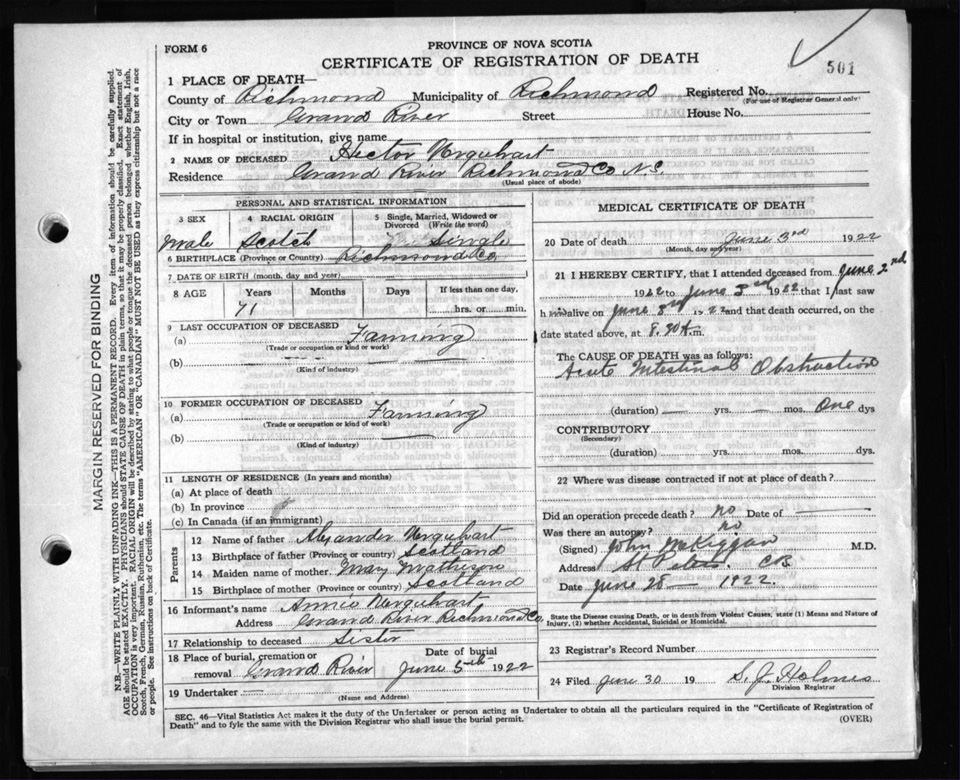 FORM 6
PROVINCE OF NOVA SCOTIA
CERTIFICATE OF REGISTRATION OF DEATH
501
1 PLACE OF DEATH—
County of Richmond Municipality of Richmond Registered No.
(For use of Registrar General only)
City or Town Grand River Street House No.
If in hospital or institution, give name
2 NAME OF DECEASED Hector Urquhart
Residence Grand River Richmond Co N.S.
(Usual place of abode)
PERSONAL AND STATISTICAL INFORMATION
3 SEX 4 RACIAL ORIGIN 5 Single, Married, Widowed or Divorced (Write the word)
Male Scotch Single
6 BIRTHPLACE (Province or Country) Richmond Co.
7 DATE OF BIRTH (month, day, and year)
8 AGE Years Months Days If less than one day,
71 hrs. or min.
9 LAST OCCUPATION OF DECEASED
(a) Farming
(Trade or occupation or kind of work)
(b)
(Kind of industry)
10 FORMER OCCUPATION OF DECEASED
(a) Farming
(Trade or occupation or kind of work)
(b)
(Kind of industry)
11 LENGTH OF RESIDENCE (In years and months)
(a) At place of death
(b) In province
(c) In Canada (if an immigrant)
Parents
12 Name of father Alexander Urquhart
13 Birthplace of father (Province or country) Scotland
14 Maiden name of mother. Mary Matheson
15 Birthplace of mother (Province or country) Scotland
16 Informant's name Annie Urquhart
Address Grand River Richmond Co.
17 Relationship to deceased Sister
18 Place of burial, cremation or removal Grand River Date of burial June 5th 1922
19 Undertaker —
(Name and Address)
MEDICAL CERTIFICATE OF DEATH
20 Date of death June 3rd 1922
(Month, day and year)
21 I HEREBY CERTIFY, that I attended deceased from June 2nd
1922 to June 3rd 1922 that I last saw
him alive on June 3rd 1922 and that death occurred, on the
date stated above, at A.m.
The CAUSE OF DEATH was as follows:
Acute Intestinal Obstruction
(duration) — yrs. — mos. One dys
CONTRIBUTORY
(Secondary)
(duration) yrs. mos. dys.
22 Where was disease contracted if not at place of death?
Did an operation precede death? No Date of —
Was there an autopsy? No
(Signed) John M.D.
Address St Peters. CB
Date June 28 — 1922.
State the Disease causing Death, or in death from Violent Causes, state (1) Means and Nature of Injury, (2) whether Accidental, Suicidal or Homicidal.
23 Registrar's Record Number
24 Filed June 30 19 S. J. Holmes
Division Registrar
SEC. 46—Vital Statistics Act makes it the duty of the Undertaker or person acting as Undertaker to obtain all the particulars required in the "Certificate of Registration of
Death" and to fyle the same with the Division Registrar who shall issue the burial permit.
(OVER)
MARGIN RESERVED FOR BINDING
N.B.—WRITE PLAINLY WITH UNFADING INK—THIS IS A PERMANENT RECORD. Every item of information should be carefully supplied.
AGE should be stated EXACTLY. PHYSICIANS should STATE CAUSE OF DEATH in plain terms, so that it may be properly classified. Exact statement of
OCCUPATION is very important. RACIAL ORIGIN will be described by stating to what people or tongue the deceased person belonged whether English, Irish,
Scotch, French, German, Russian, Ruthenian, etc. The terms "AMERICAN" OR "CANADIAN" MUST NOT BE USED as they express citizenship but not a race
or people. See instructions on back of Certificate.